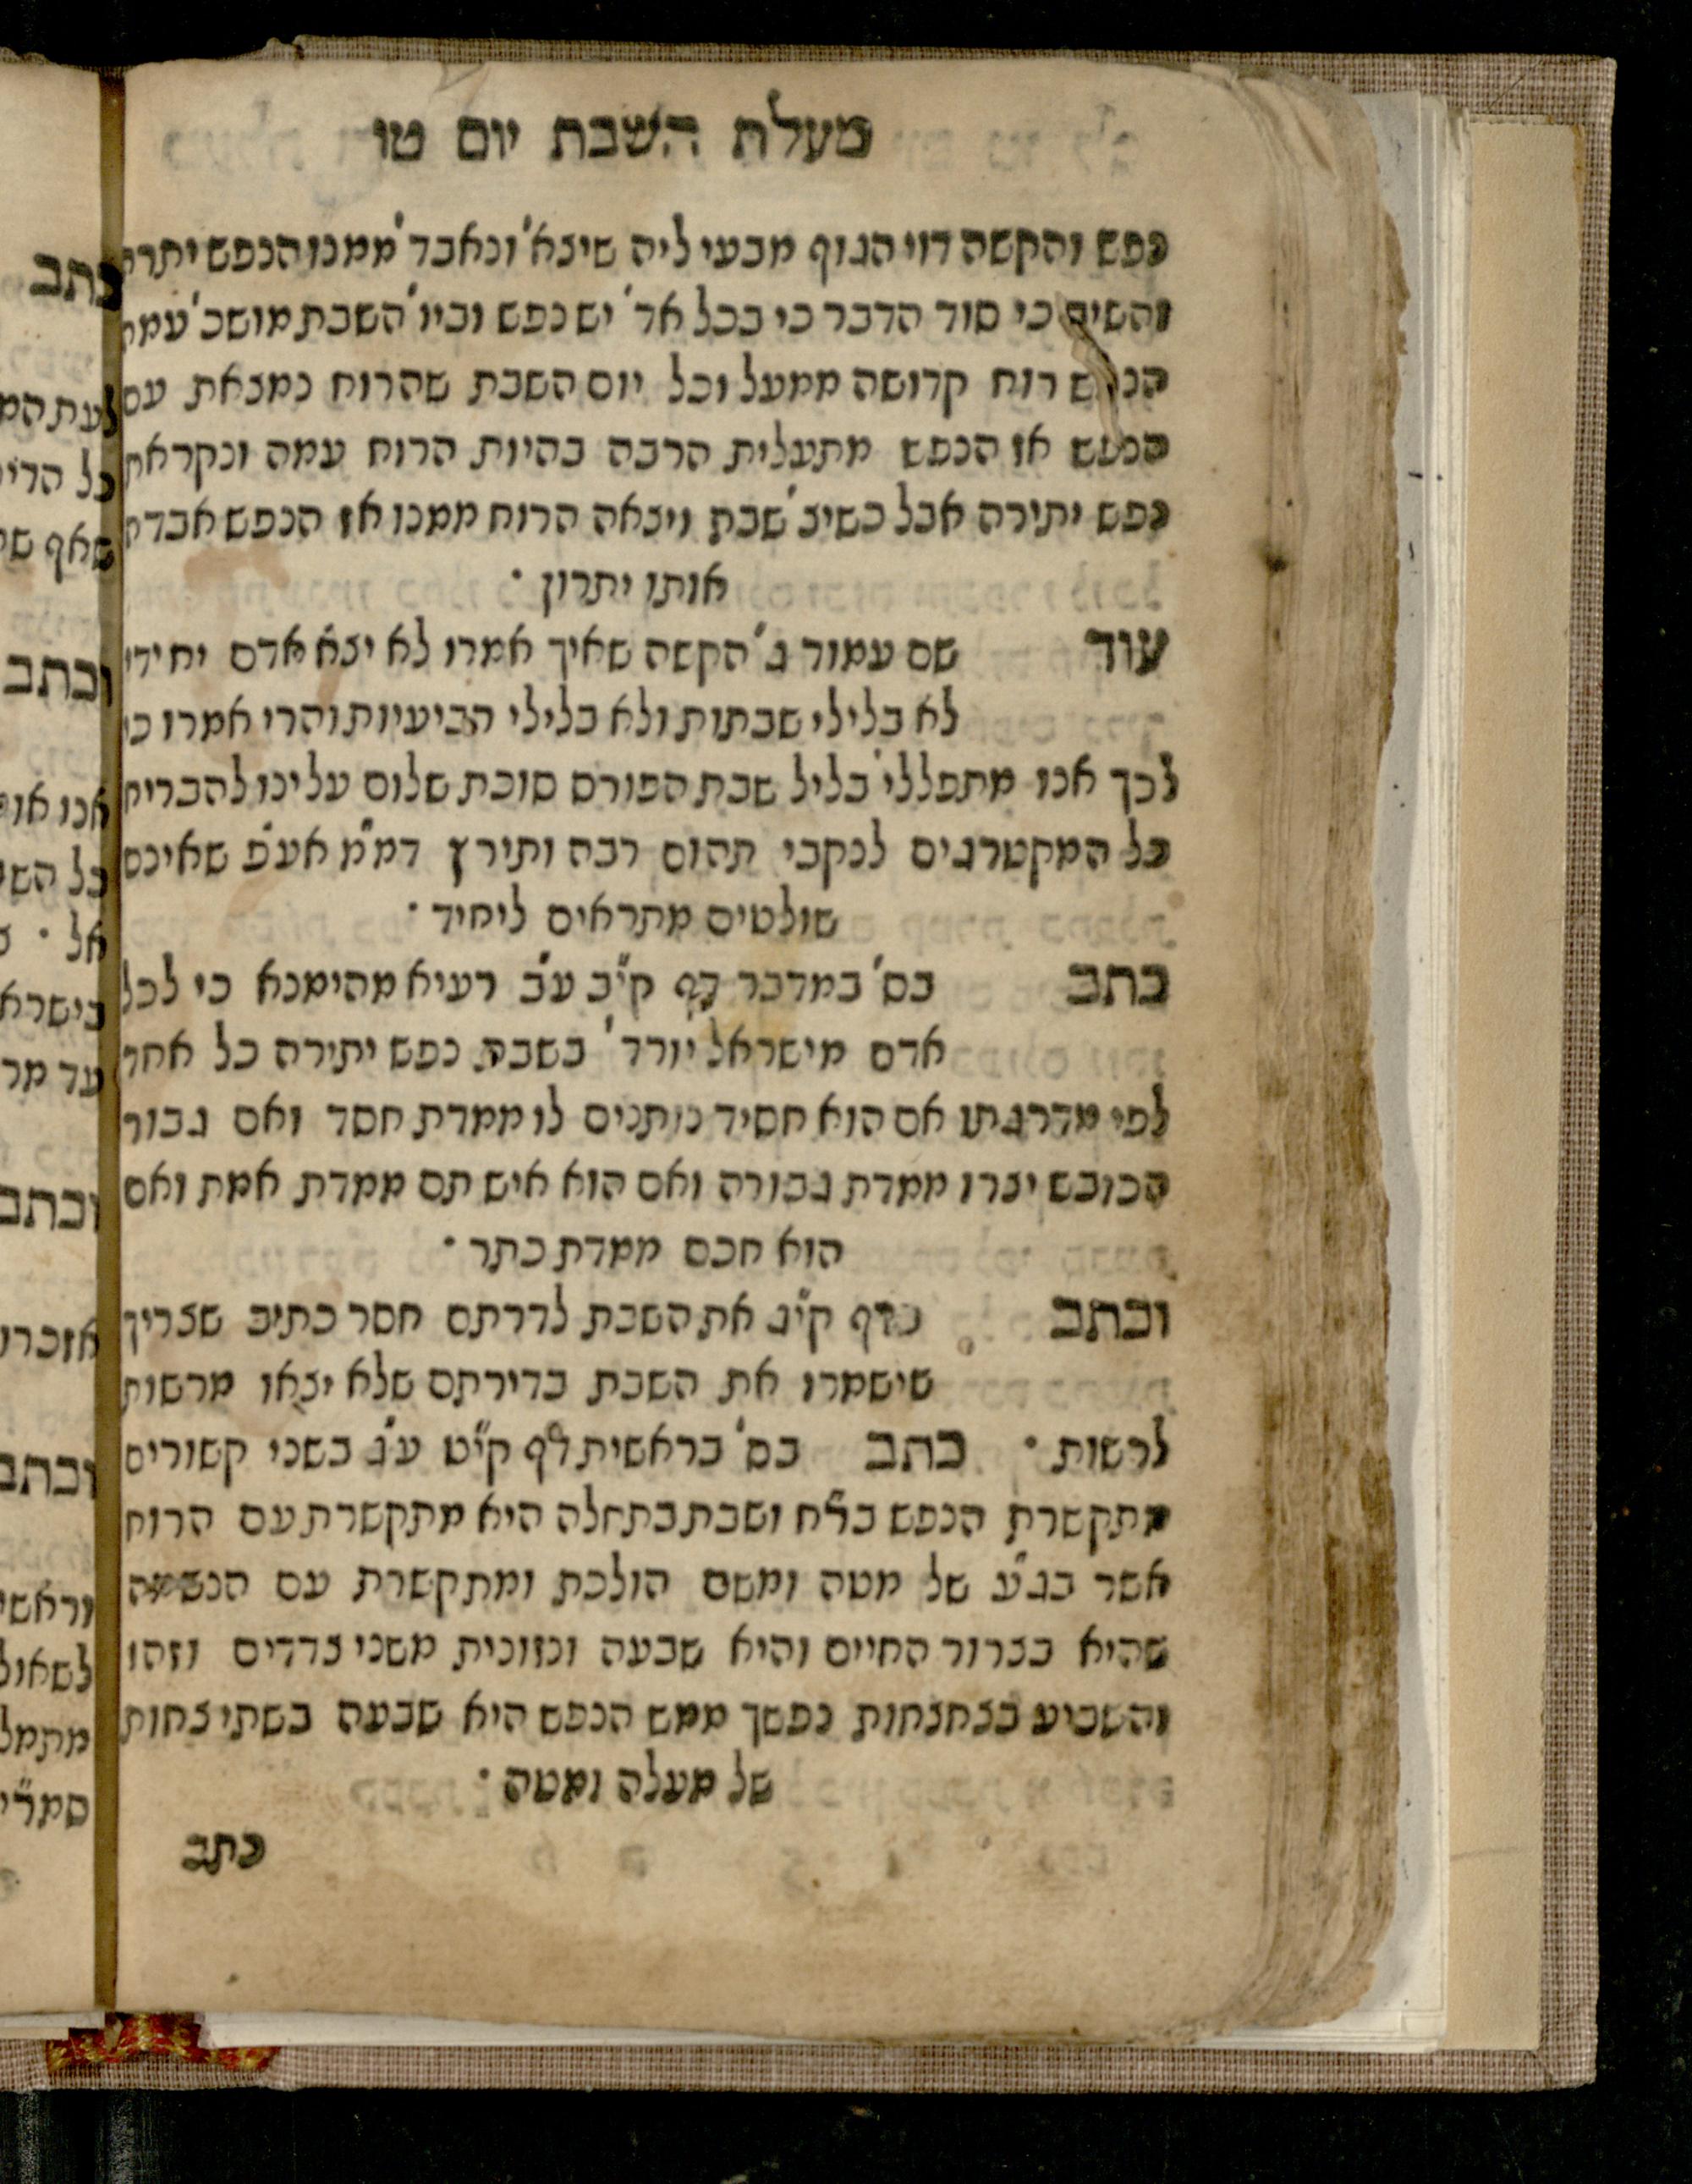 מעלת השבת יום טו
נפש והקשה דוי הגוף מבעי ליה שיצא' ונאבד' ממנו הנפש יתרה
והשיב כי סוד הדבר כי בכל אד' יש נפש וביו' השבת מושכ' עמה
הנפש רוח קדושה ממעל וכל יום השבת שהרוח נמצאת עם
הנפש אז הנפש מתעלית הרבה בהיות הרוח עמה ונקראת
נפש יתירה אבל כשיצ' שבת ויצאה הרוח ממנו אז הנפש אבדה
אותו יתרון ·
עוד שם עמוד ג' הקשה שאיך אמרו לא יצא אדם יחידי
לא בלילי שבתות ולא בלילי רביעיות והרי אמרו כי
לכך אנו מתפללי' בליל שבת הפורס סוכת שלום עלינו להבריח
כל המקטרגים לנקבי תהום רבה ותירץ דמ"מ אע"פ שאינם
שולטים מתראים ליחיד ·
כתב בס' במדבר דף קי"ב ע"ב רעיא מהימנא כי לכל
אדם מישראל יורד' בשבת נפש יתירה כל אחד
לפי מדרגתו אם הוא חסיד נותנים לו ממדת חסד ואם גבור
הכובש יצרו ממדת גבורה ואם הוא איש תם ממדת אמת ואם
הוא חכם ממדת כתר ·
וכתב בדף קי"ג את השבת לדרתם חסר כתיב שצריך
שישמרו את השבת בדירתם שלא יצאו מרשות
לרשות · כתב בס' בראשית דף קי"ט ע"ג בשני קשורים
מתקשרת הנפש בר"ח ושבת בתחלה היא מתקשרת עם הרוח
אשר בג"ע של מטה ומשם הולכת ומתקשרת עם הנשמה
שהיא בצרור החיים והיא שבעה ונזונית משני צדדים וזהו
והשביע בצחצחות נפשך ממש הנפש היא שבעה בשתי צחות
של מעלה ומטה ·
כתב
כתב
לעת המ
כל הדי
שאף שי
וכתב
אנו או
כל השי
אל ·
בישרא
עד מר
וכתב
אזכרו
וכתב
וראשי
לשאול
מתמל